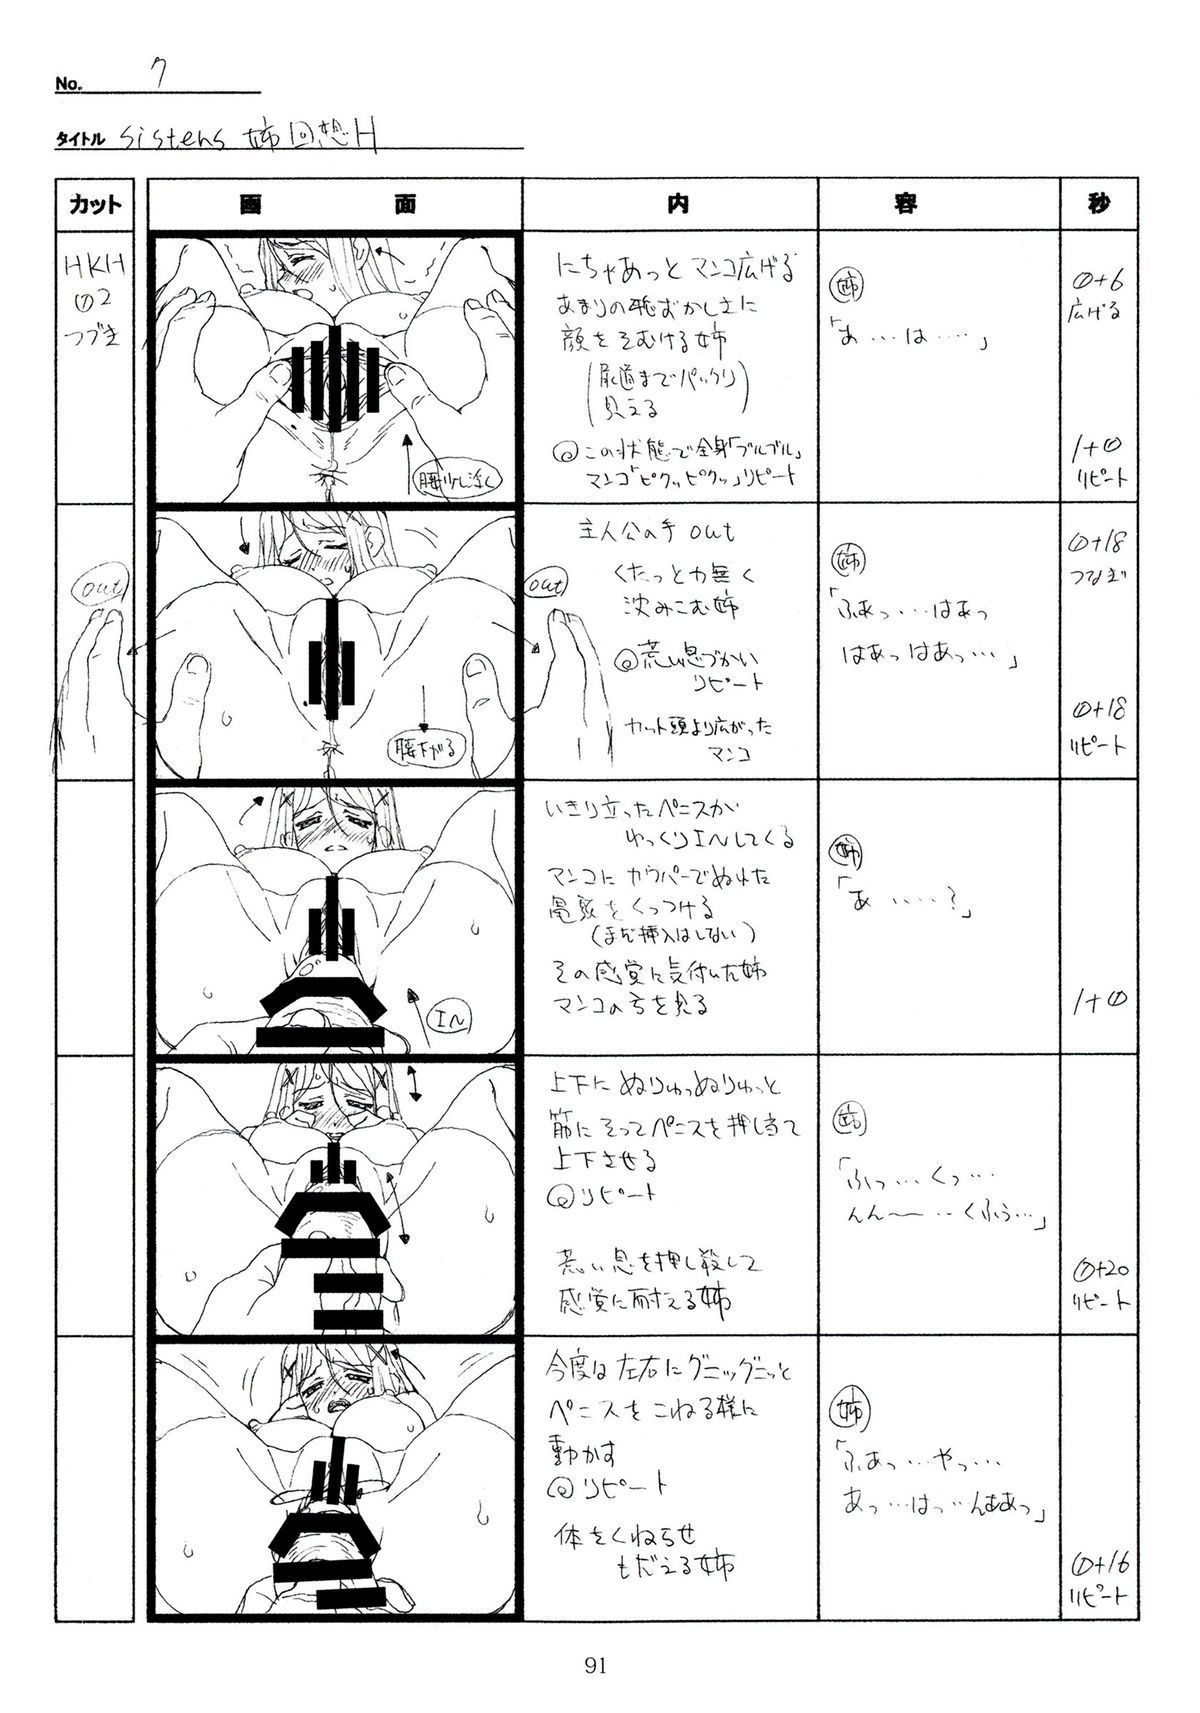 No. 7
タイトル sisters 姉回想H
カット
画 面
内 容
秒
HKH
①2
つづき
にちゃあっとマンコ広げる
あまりの恥ずかしさに
顔をそむける姉
(尿道までパックリ
見える)
◎この状態で全身「ブルブル」
マンコ「ピクッピクッ」リピート
姉
「あ…は……」
0+6
広げる
1+0
リピート
腰少し浮く
out
out
主人公の手 out
くたっと力無く
沈みこむ姉
◎荒い息づかい
リピート
カット頭より広がった
マンコ
腰下がる
姉
「ふあっ…はあっ
はあっはあっ…」
0+18
つなぎ
0+18
リピート
いきり立ったペニスが
ゆっくりINしてくる
マンコにカウパーでぬれた
亀頭をくっつける
(まだ挿入はしない)
その感覚に気付いた姉
マンコの方を見る
IN
姉
「あ……?」
1+0
上下にぬりゅっぬりゅっと
筋にそってペニスを押し当て
上下させる
◎リピート
荒い息を押し殺して
感覚に耐える姉
姉
「ふっ…くっ…
んん〜…くふぅ…」
0+20
リピート
今度は左右にグニッグニッと
ペニスをこねる様に
動かす
◎リピート
体をくねらせ
もだえる姉
姉
「ふあっ…やっ…
あっ…はっ…んああっ」
0+16
リピート
91